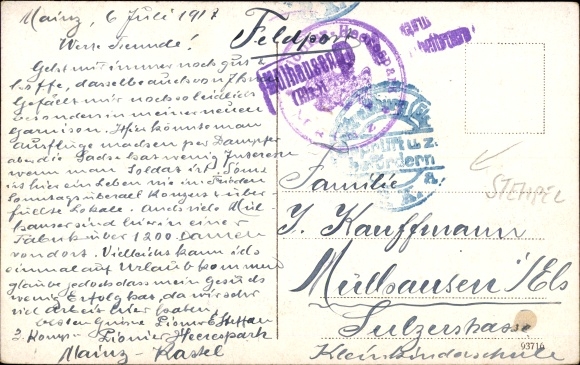 Mainz, 6 Juli 1917
Werte Freunde!
Geht mir immer noch gut &
hoffe, dasselbe auch von Ihnen
Gefällt mir noch so leidlich
besonders in meiner neuen
garnison. Hier könnte man
ausflüge machen per Dampfer
aber die Sache hat wenig Interesse
wenn man Soldat ist. Sonst
ist hier ein Leben wie im Frieden
Sonntags überall Konzert & über-
füllte Lokale. Auch viele Mül-
hauser sind hier in einer
Fabrik über 1200 Damen
von dort. Vielleicht kann ich
einmal auf Urlaub kommen
glaube jedoch dass mein gesuch
wenig Erfolg hat, da wir sehr
viel arbeit hier haben.
besten Grüsse Pionier
3. Komp. Pionier Heerespark
Mainz-Kastel
Feldpost
Mülhausen
(Els.)
Geprüft u. z.
befördern
Familie
J. Kauffmann
Mülhausen i/Els
Sulzerstrasse
Kleinkinderschule
STEMPEL
93716